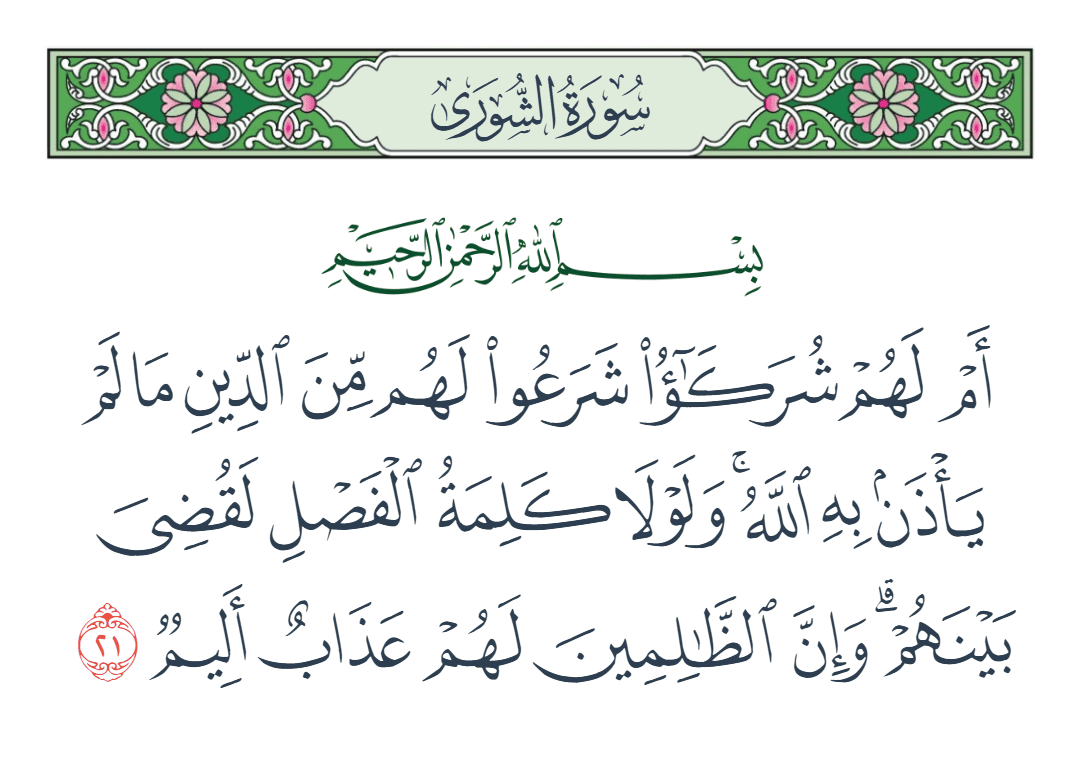 سُورَةُ الشُّورَىٰ
بِسْمِ ٱللَّهِ ٱلرَّحْمَٰنِ ٱلرَّحِيمِ
أَمْ لَهُمْ شُرَكَٰٓؤُا۟ شَرَعُوا۟ لَهُم مِّنَ ٱلدِّينِ مَا لَمْ
يَأْذَنۢ بِهِ ٱللَّهُ ۚ وَلَوْلَا كَلِمَةُ ٱلْفَصْلِ لَقُضِىَ
بَيْنَهُمْ ۗ وَإِنَّ ٱلظَّٰلِمِينَ لَهُمْ عَذَابٌ أَلِيمٌ ٢١